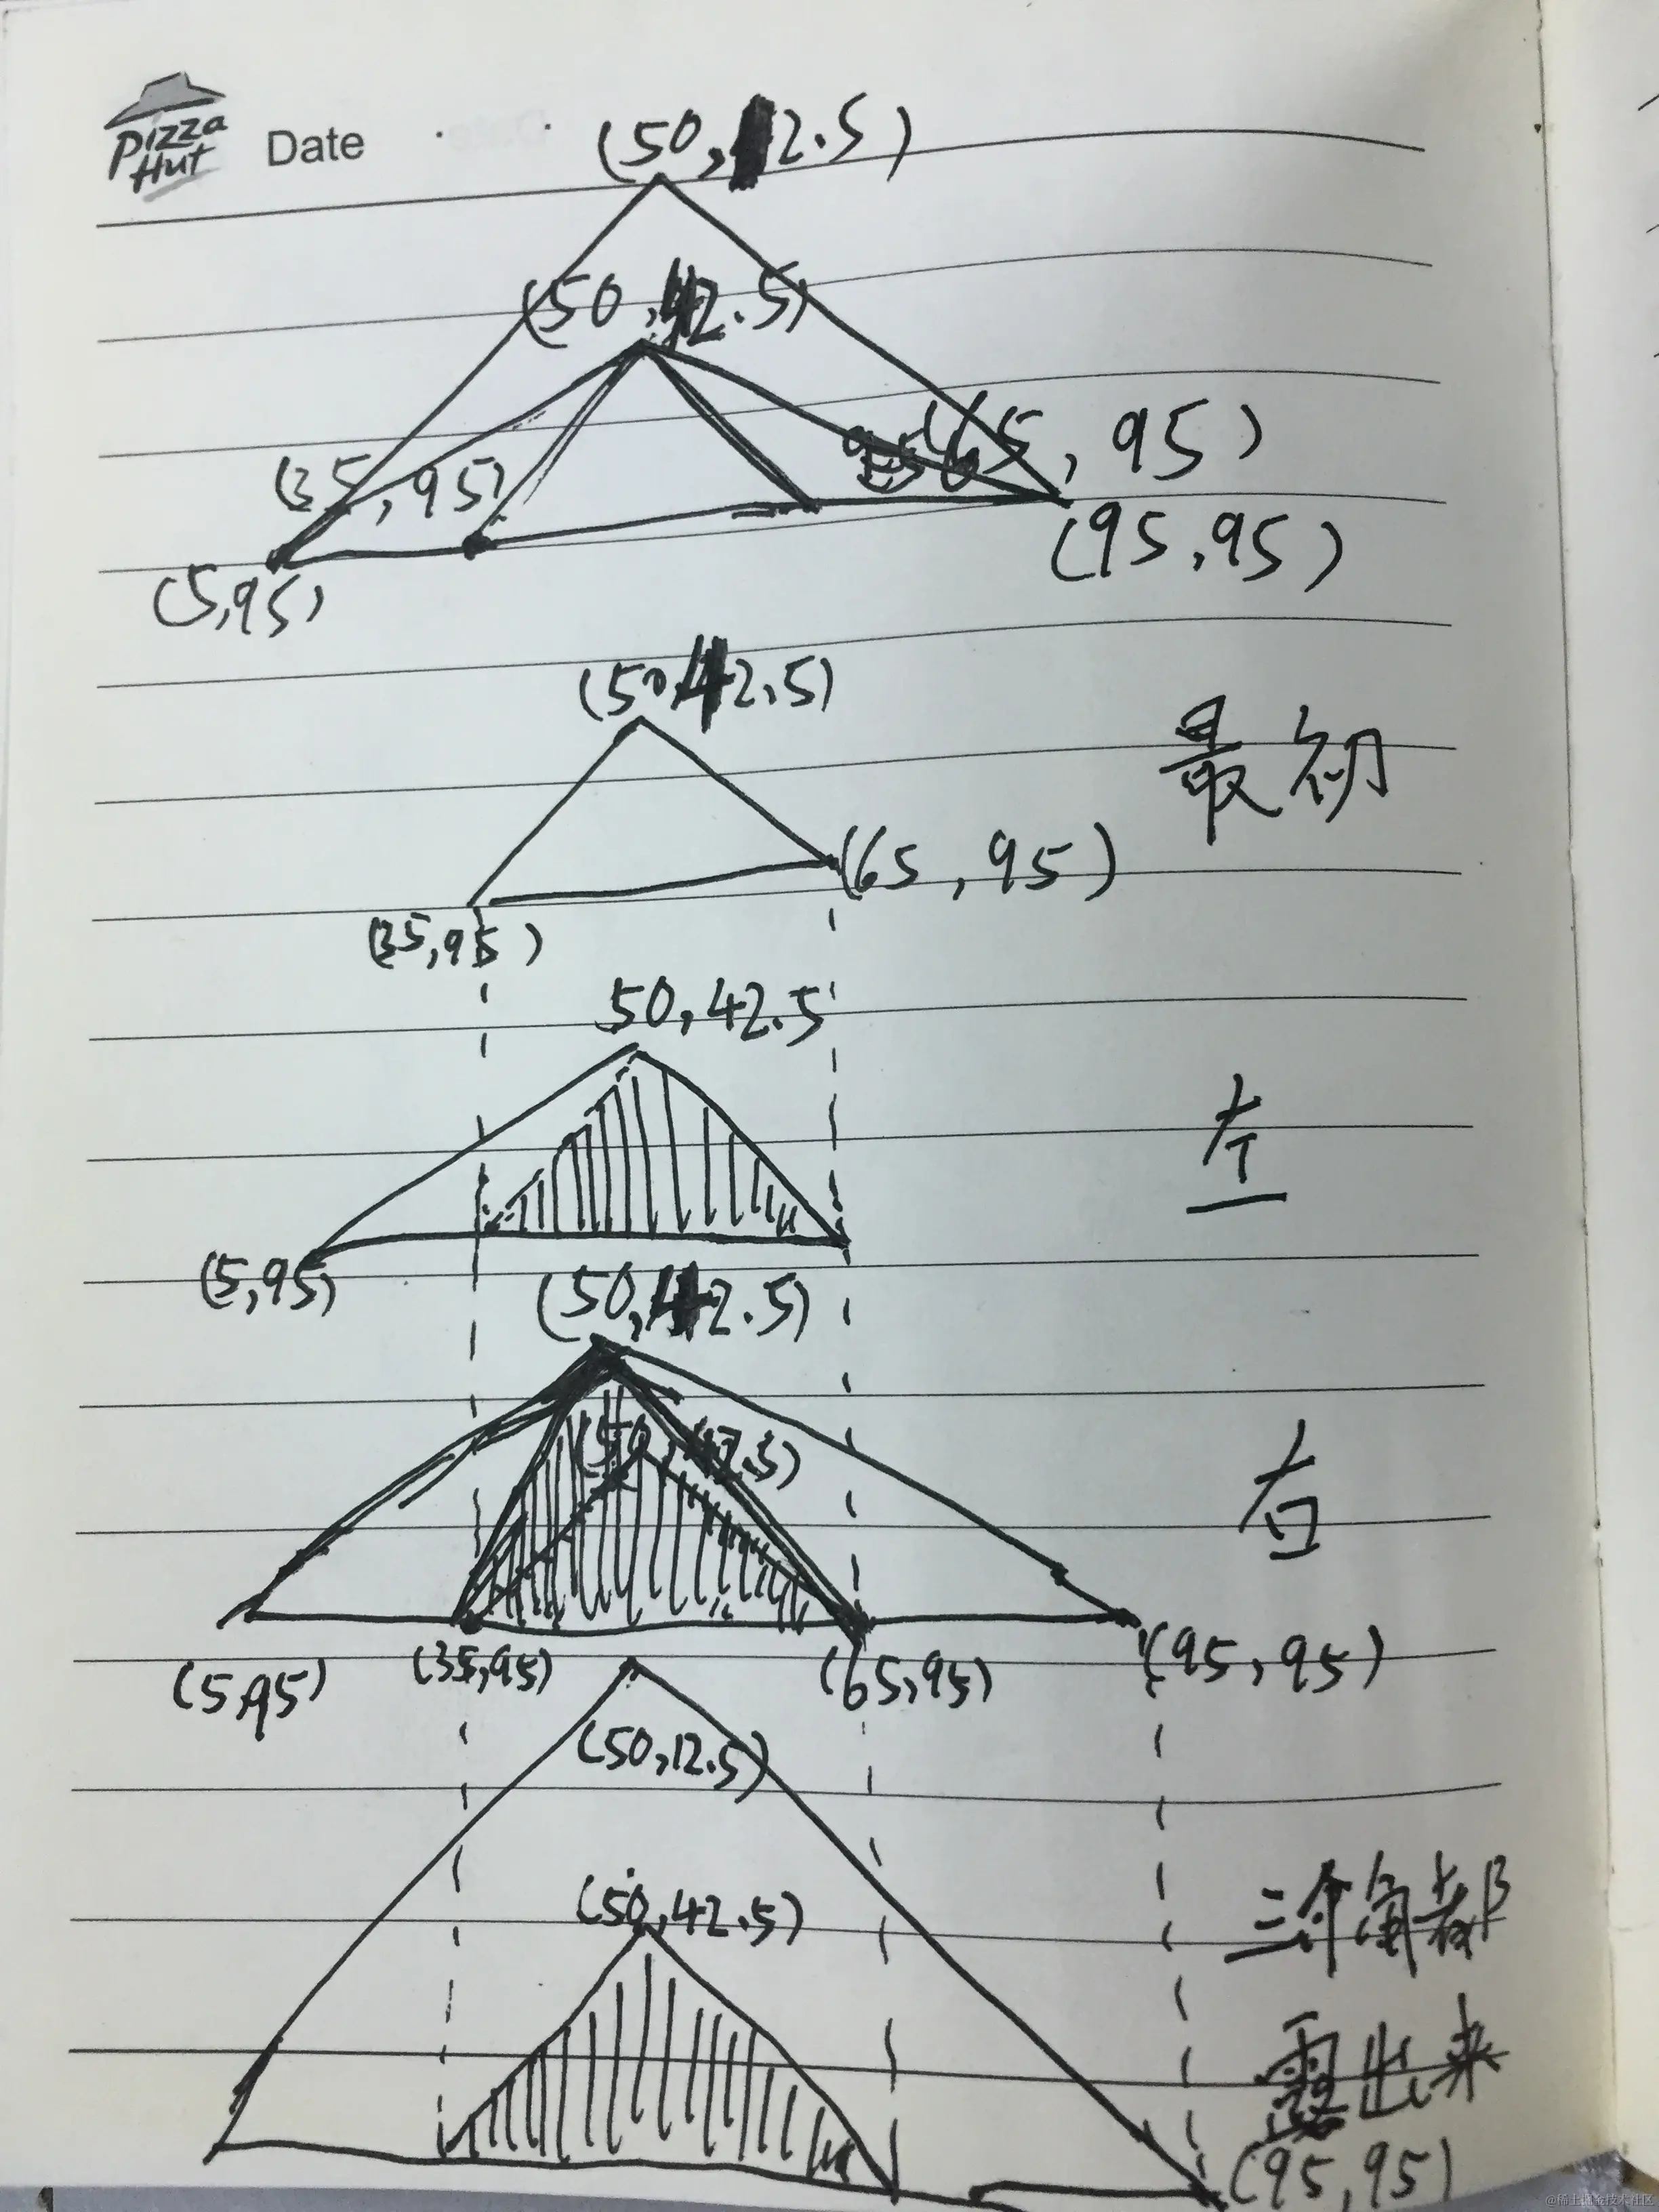 Pizza Hut
Date
(50,12.5)
(50,42.5)
(35,95)
(65,95)
(5,95)
(95,95)
(50,42.5)
最初
(65,95)
(35,95)
50,42.5
左
(5,95)
(50,42.5)
(50,42.5)
右
(5,95)
(35,95)
(65,95)
(95,95)
(50,12.5)
(50,42.5)
三个角都
露出来
(95,95)
@稀土掘金技术社区